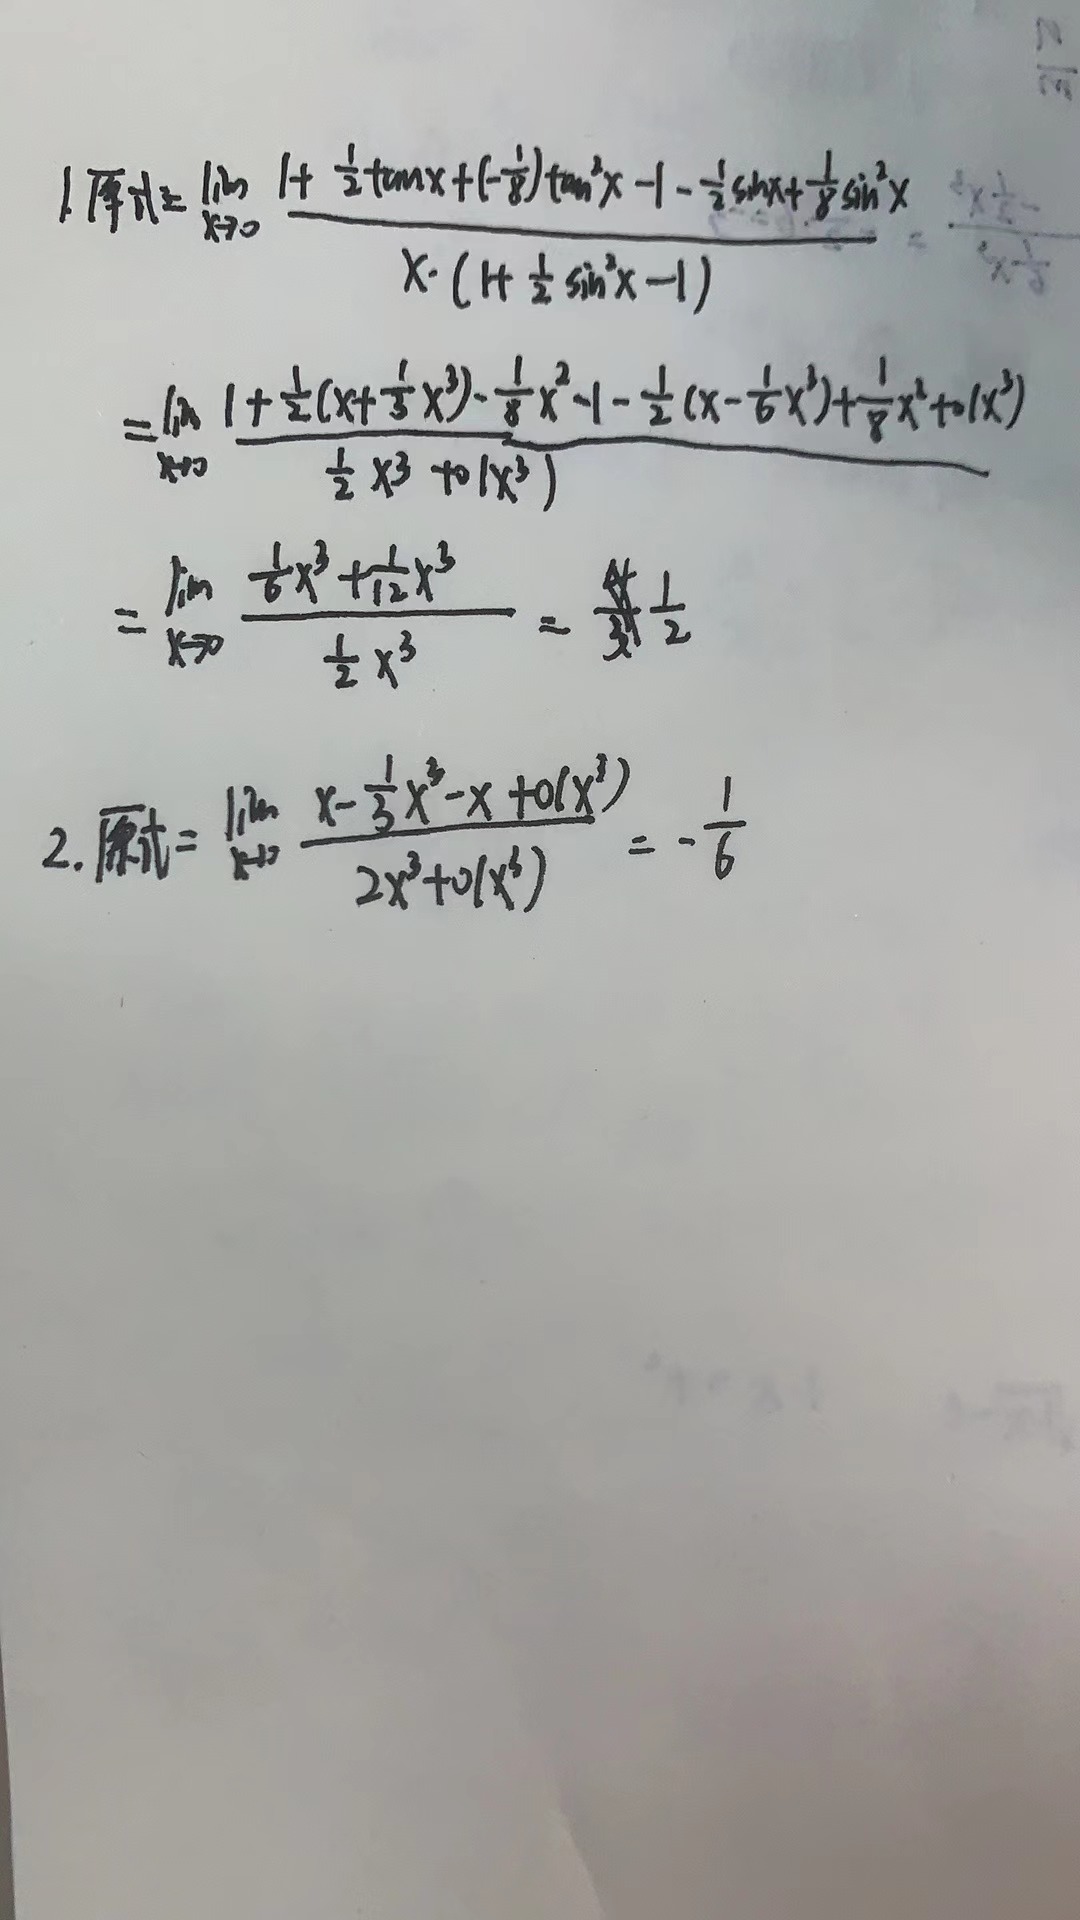 1. 原式 = lim x→0 (1 + 1/2 tanx + (-1/8) tan²x - 1 - 1/2 sinx + 1/8 sin²x) / (x·(1 + 1/2 sin²x - 1))
= lim x→0 (1 + 1/2 (x + 1/3 x³) - 1/8 x² - 1 - 1/2 (x - 1/6 x³) + 1/8 x² + o(x³)) / (1/2 x³ + o(x³))
= lim x→0 (1/6 x³ + 1/12 x³) / (1/2 x³) = 1/2
2. 原式 = lim x→0 (x - 1/3 x³ - x + o(x³)) / (2x³ + o(x³)) = - 1/6